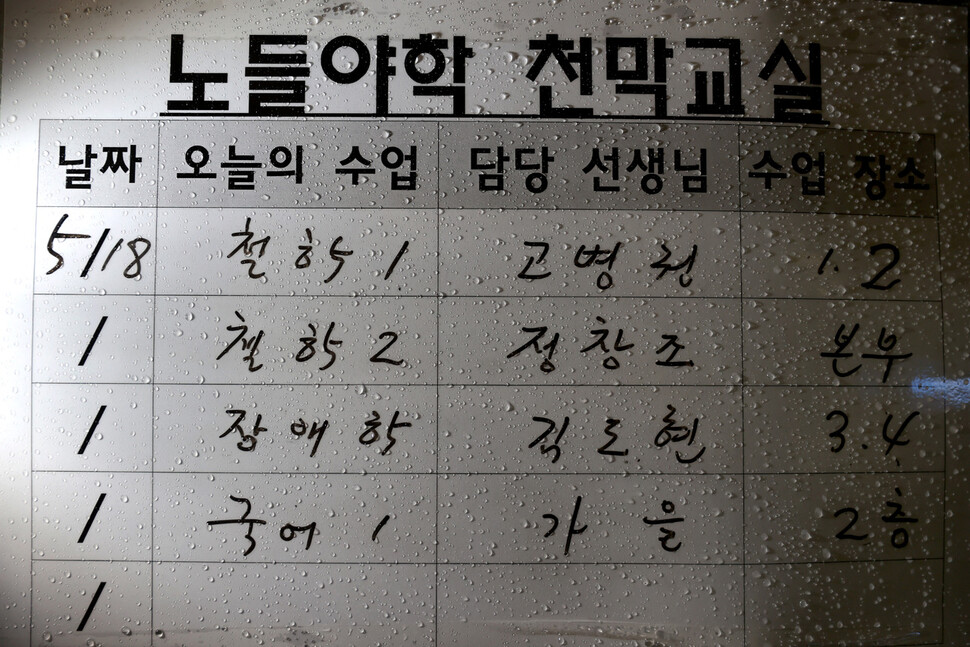 노들야학 천막교실
날짜 오늘의 수업 담당 선생님 수업 장소
5/18 철학 1 고병권 1. 2
/ 철학 2 정창조 본부
/ 장애학 김도현 3. 4
/ 국어 1 가을 2층
/